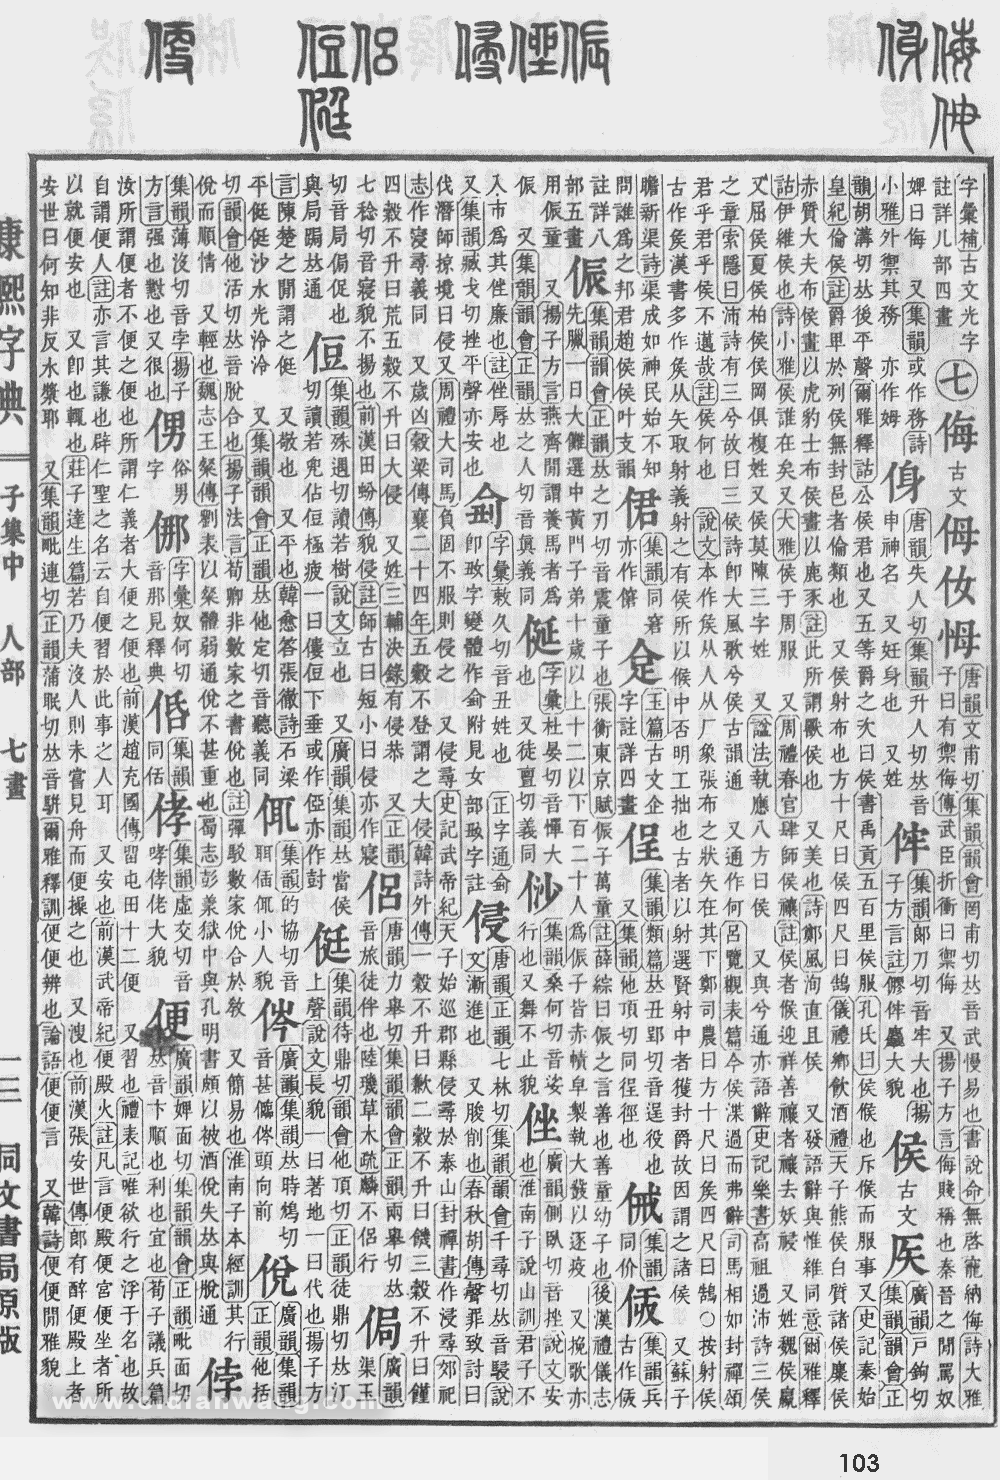 字彙補古文光字
註詳儿部四畫
七
侮
古文
唐韻文甫切集韻韻會罔甫切𠀤音武慢易也書說命無啓寵納侮詩大雅
子曰有禦侮傳武臣折衝曰禦侮 又揚子方言侮賤稱也秦晉之閒罵奴
婢曰侮 又集韻或作務詩
小雅外禦其務 亦作姆
唐韻失人切集韻升人切𠀤音
申神名 又妊身也 又姓
集韻郞刀切音牢大也揚
子方言註 麤大貌
侯
古文
廣韻戸鉤切
集韻韻會正
韻胡溝切𠀤後平聲爾雅釋詁公侯君也又五等爵之次曰侯書禹貢五百里侯服孔氏曰侯候也斥候而服事 又史記秦始
皇紀倫侯註爵卑於列侯無封邑者倫類也 又侯射布也方十尺曰侯四尺曰鵠儀禮鄕飲酒禮天子熊侯白質諸侯麋侯
赤質大夫布侯畫以虎豹士布侯畫以鹿豕註此所謂獸侯也 又美也詩鄭風洵直且侯 又發語辭與惟維同意爾雅釋
詁伊維侯也詩小雅侯誰在矣又大雅侯于周服 又周禮春官肆師侯禳註侯者候迎祥善禳者禳去妖祲 又姓魏侯嬴
又屈侯夏侯柏侯侯岡俱複姓又侯莫陳三字姓 又諡法執應八方曰侯 又與兮通亦語辭史記樂書高祖過沛詩三侯
之章索隱曰沛詩有三兮故曰三侯詩卽大風歌兮侯古韻通 又通作何呂覽觀表篇今侯渫過而弗辭司馬相如封禪頌
君乎君乎侯不邁哉註侯何也 說文本作矦从人从厂象張布之狀矢在其下鄭司農曰方十尺曰矦四尺曰鵠○按射侯
古作矦漢書多作矦从矢取射義射之有侯所以候中否明工拙也古者以射選賢射中者獲封爵故因謂之諸侯 又蘇子
瞻新渠詩渠成如神民始不知
問誰爲之邦君趙侯侯叶支韻
侰
集韻同窘
亦作僒
玉篇古文企
字註詳四畫
侱
集韻類篇𠀤丑郢切音逞 也
又集韻他頂切同徎徑也
集韻
同价
集韻兵
古作
註詳八
部五畫
侲
集韻韻會正韻𠀤之刃切音震童子也張衡東京賦侲子萬童註薛綜曰侲之言善也善童幼子也後漢禮儀志
先臘一日大儺選中黃門子弟十歲以上十二以下百二十人爲侲子皆赤幘皁製執大鼗以逐疫 又挽歌亦
用侲童 又揚子方言燕齊閒謂養馬者爲
侲 又集韻韻會正韻𠀤之人切音眞義同
字彙杜晏切音憚大
也 又徒亶切義同
集韻桑何切音娑
行也 又舞不止貌
侳
廣韻側臥切音挫說文安
也淮南子說山訓君子不
入市爲其侳廉也註侳辱也
又集韻臧戈切挫平聲亦安也
字彙敕久切音丑姓也
侵
唐韻正韻七林切集韻韻會千尋切𠀤音駸說
文漸進也 又朘削也春秋胡傳聲罪致討曰
伐潛師掠境曰侵 又周禮大司馬負固不服則侵之 又侵尋史記武帝紀天子始巡郡縣侵尋於泰山封禪書作浸尋郊祀
志作寖尋義同 又歲凶穀梁傳襄二十四年五穀不登謂之大侵韓詩外傳一穀不升曰歉二穀不升曰饑三穀不升曰饉
四穀不升曰荒五穀不升曰大侵 又姓三輔決錄有侵恭 又正韻
七稔切音寢貌不揚也前漢田蚡傳貌侵註師古曰短小曰侵亦作寢
侶
唐韻力舉切集韻韻會正韻兩舉切𠀤
音旅徒伴也陸璣草木疏麟不侶行
侷
廣韻
渠玉
切音局侷促也
與局跼𠀤通
侸
集韻殊遇切讀若樹說文立也 又廣韻集韻𠀤當侯
切讀若兜佔侸極疲一曰僂侸下垂或作 亦作尌
侹
集韻待鼎切韻會他頂切正韻徒鼎切𠀤汀
上聲說文長貌一曰著地一曰代也揚子方
言陳楚之閒謂之侹 又敬也 又平也韓愈答張徹詩石梁
平侹侹沙水光泠泠 又集韻韻會正韻𠀤他定切音聽義同
集韻的協切音
小人貌
廣韻集韻𠀤時鴆切
音甚 頭向前
侻
廣韻集韻
正韻他括
切韻會他活切𠀤音脫合也揚子法言荀卿非數家之書侻也註彈駁數家侻合於敎 又簡易也淮南子本經訓其行
侻而順情 又輕也魏志王粲傳劉表以粲體弱通侻不甚重也蜀志彭羕獄中與孔明書頗以被酒侻失𠀤與脫通
侼
集韻薄沒切音孛揚子
方言强也懟也又很也
侽
俗男
字
字彙奴何切
音那見釋典
集韻
同佸
侾
集韻虛交切音
哮侾佬大貌
便
廣韻婢面切集韻韻會正韻毗面切
𠀤音卞順也利也宜也荀子議兵篇
汝所謂便者不便之便也所謂仁義者大便之便也前漢趙充國傳留屯田十二便 又習也禮表記唯欲行之浮于名也故
自謂便人註亦言其謙也辟仁聖之名云自便習於此事之人耳 又安也前漢武帝紀便殿火註凡言便殿便宮便坐者所
以就便安也 又卽也輒也莊子達生篇若乃夫沒人則未嘗見舟而便操之也 又溲也前漢張安世傳郞有醉便殿上者
安世曰何知非反水漿耶 又集韻毗連切正韻蒲眠切𠀤音騈爾雅釋訓便便辨也論語便便言 又韓詩便便閒雅貌
康熙字典
子集中 人部 七畫
一三
同文書局原版
103